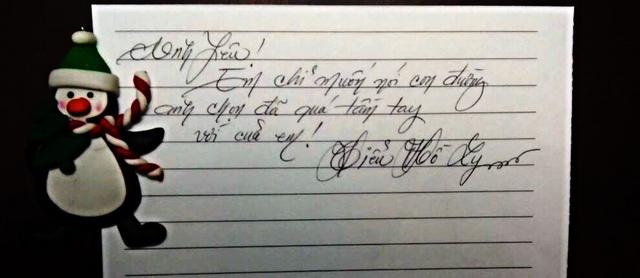 Anh Yêu!
Em chỉ muốn nói con đường
anh chọn đã quá tầm tay
với của em!
Diễm Hồ Ly